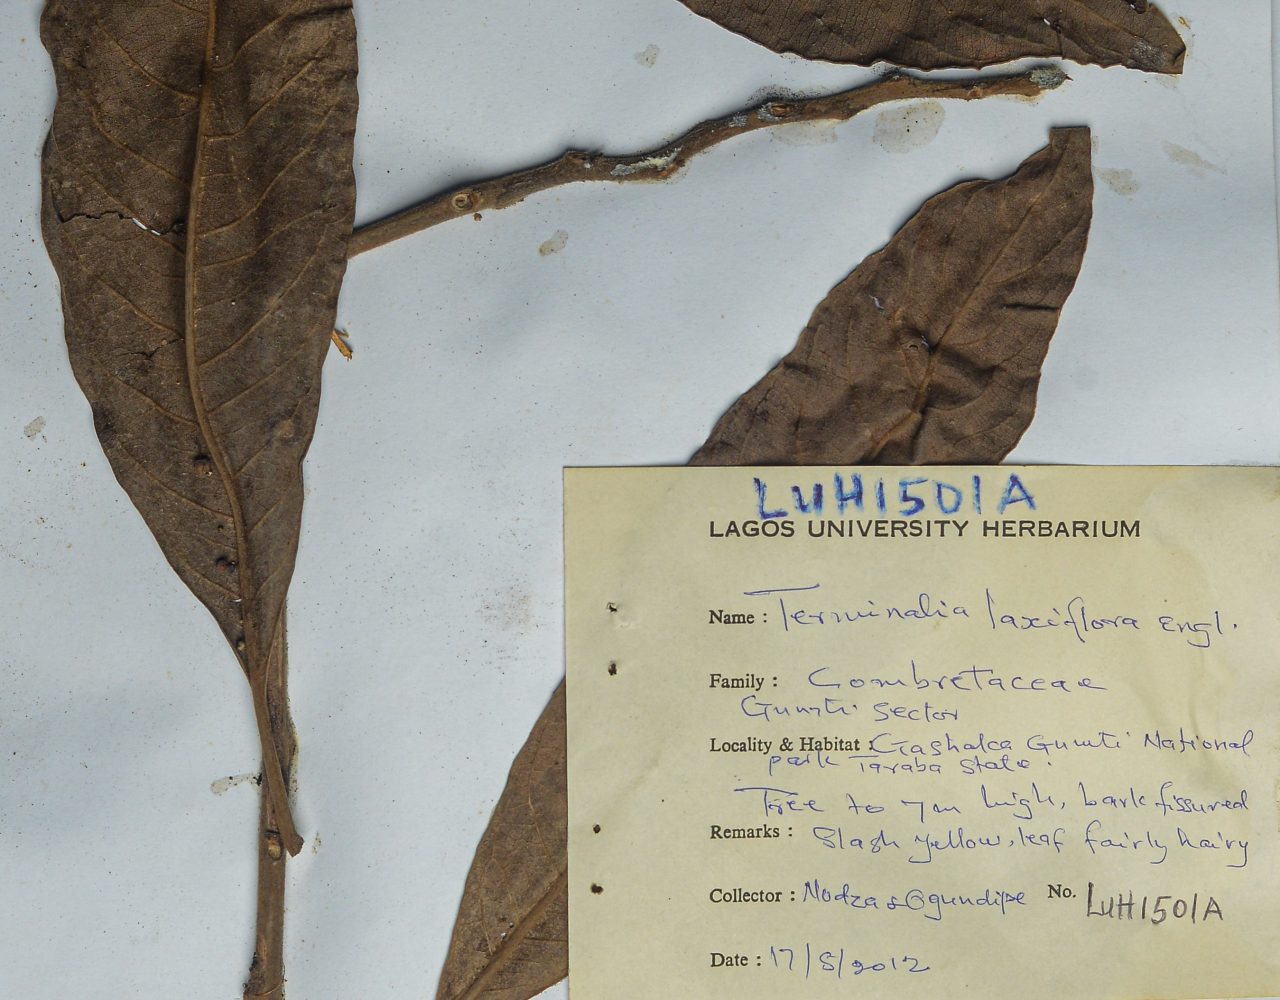 LUH1501A
LAGOS UNIVERSITY HERBARIUM
Name : Terminalia laxiflora Engl.
Family : Combretaceae
Gumti Sector
Locality & Habitat : Gashaka Gumti National
park Taraba State.
Tree to 7m high, bark fissured
Remarks : Slash yellow, leaf fairly hairy
Collector : Nodza & Ogundipe No. LUH1501A
Date : 17/8/2012